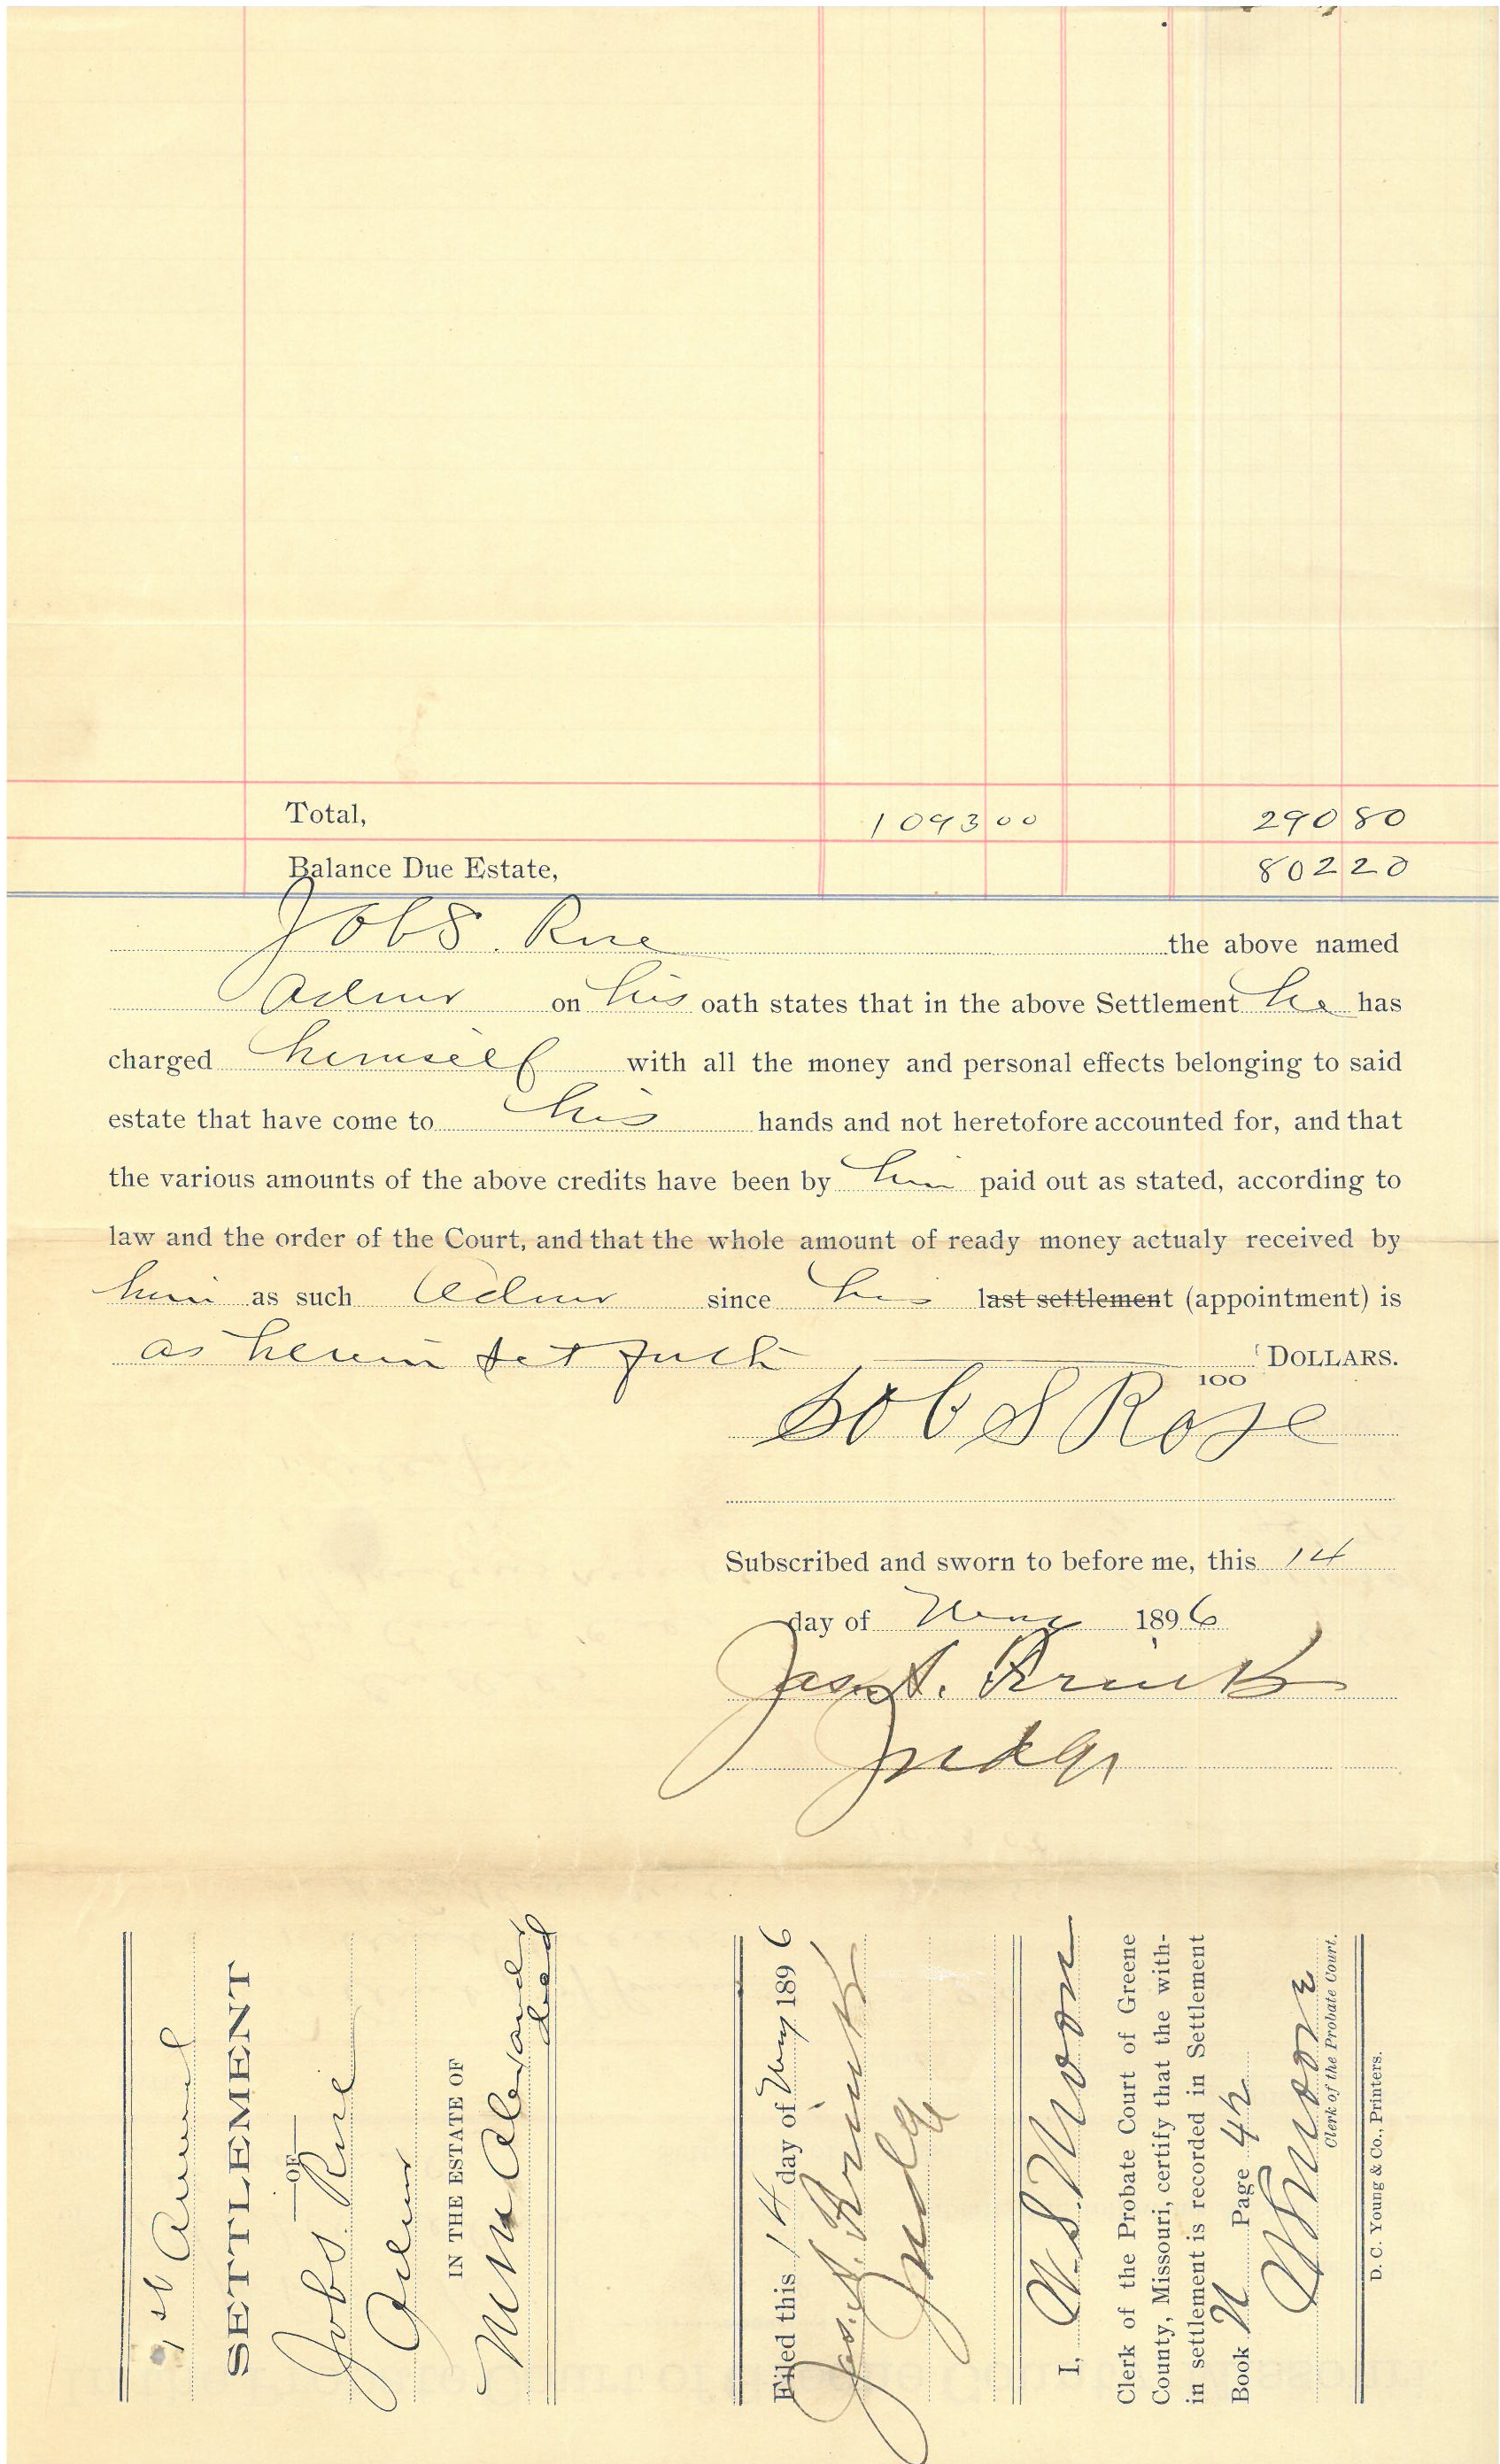 Total, 1093 00 290 80
Balance Due Estate, 802 20
Job S. Rice the above named
Admr on his oath states that in the above Settlement he has
charged himself with all the money and personal effects belonging to said
estate that have come to his hands and not heretofore accounted for, and that
the various amounts of the above credits have been by him paid out as stated, according to
law and the order of the Court, and that the whole amount of ready money actualy received by
him as such Admr since his last settlement (appointment) is
as herein set forth DOLLARS.
100
Subscribed and sworn to before me, this 14
day of May 1896
Judge
1st Annual
SETTLEMENT
OF
Job S. Rice
Admr
IN THE ESTATE OF
Wm Alexander
decd
Filed this 14 day of May 1896
Judge
I, W. S. Moore
Clerk of the Probate Court of Greene
County, Missouri, certify that the with-
in settlement is recorded in Settlement
Book N Page 42
W S Moore
Clerk of the Probate Court.
D. C. Young & Co., Printers.